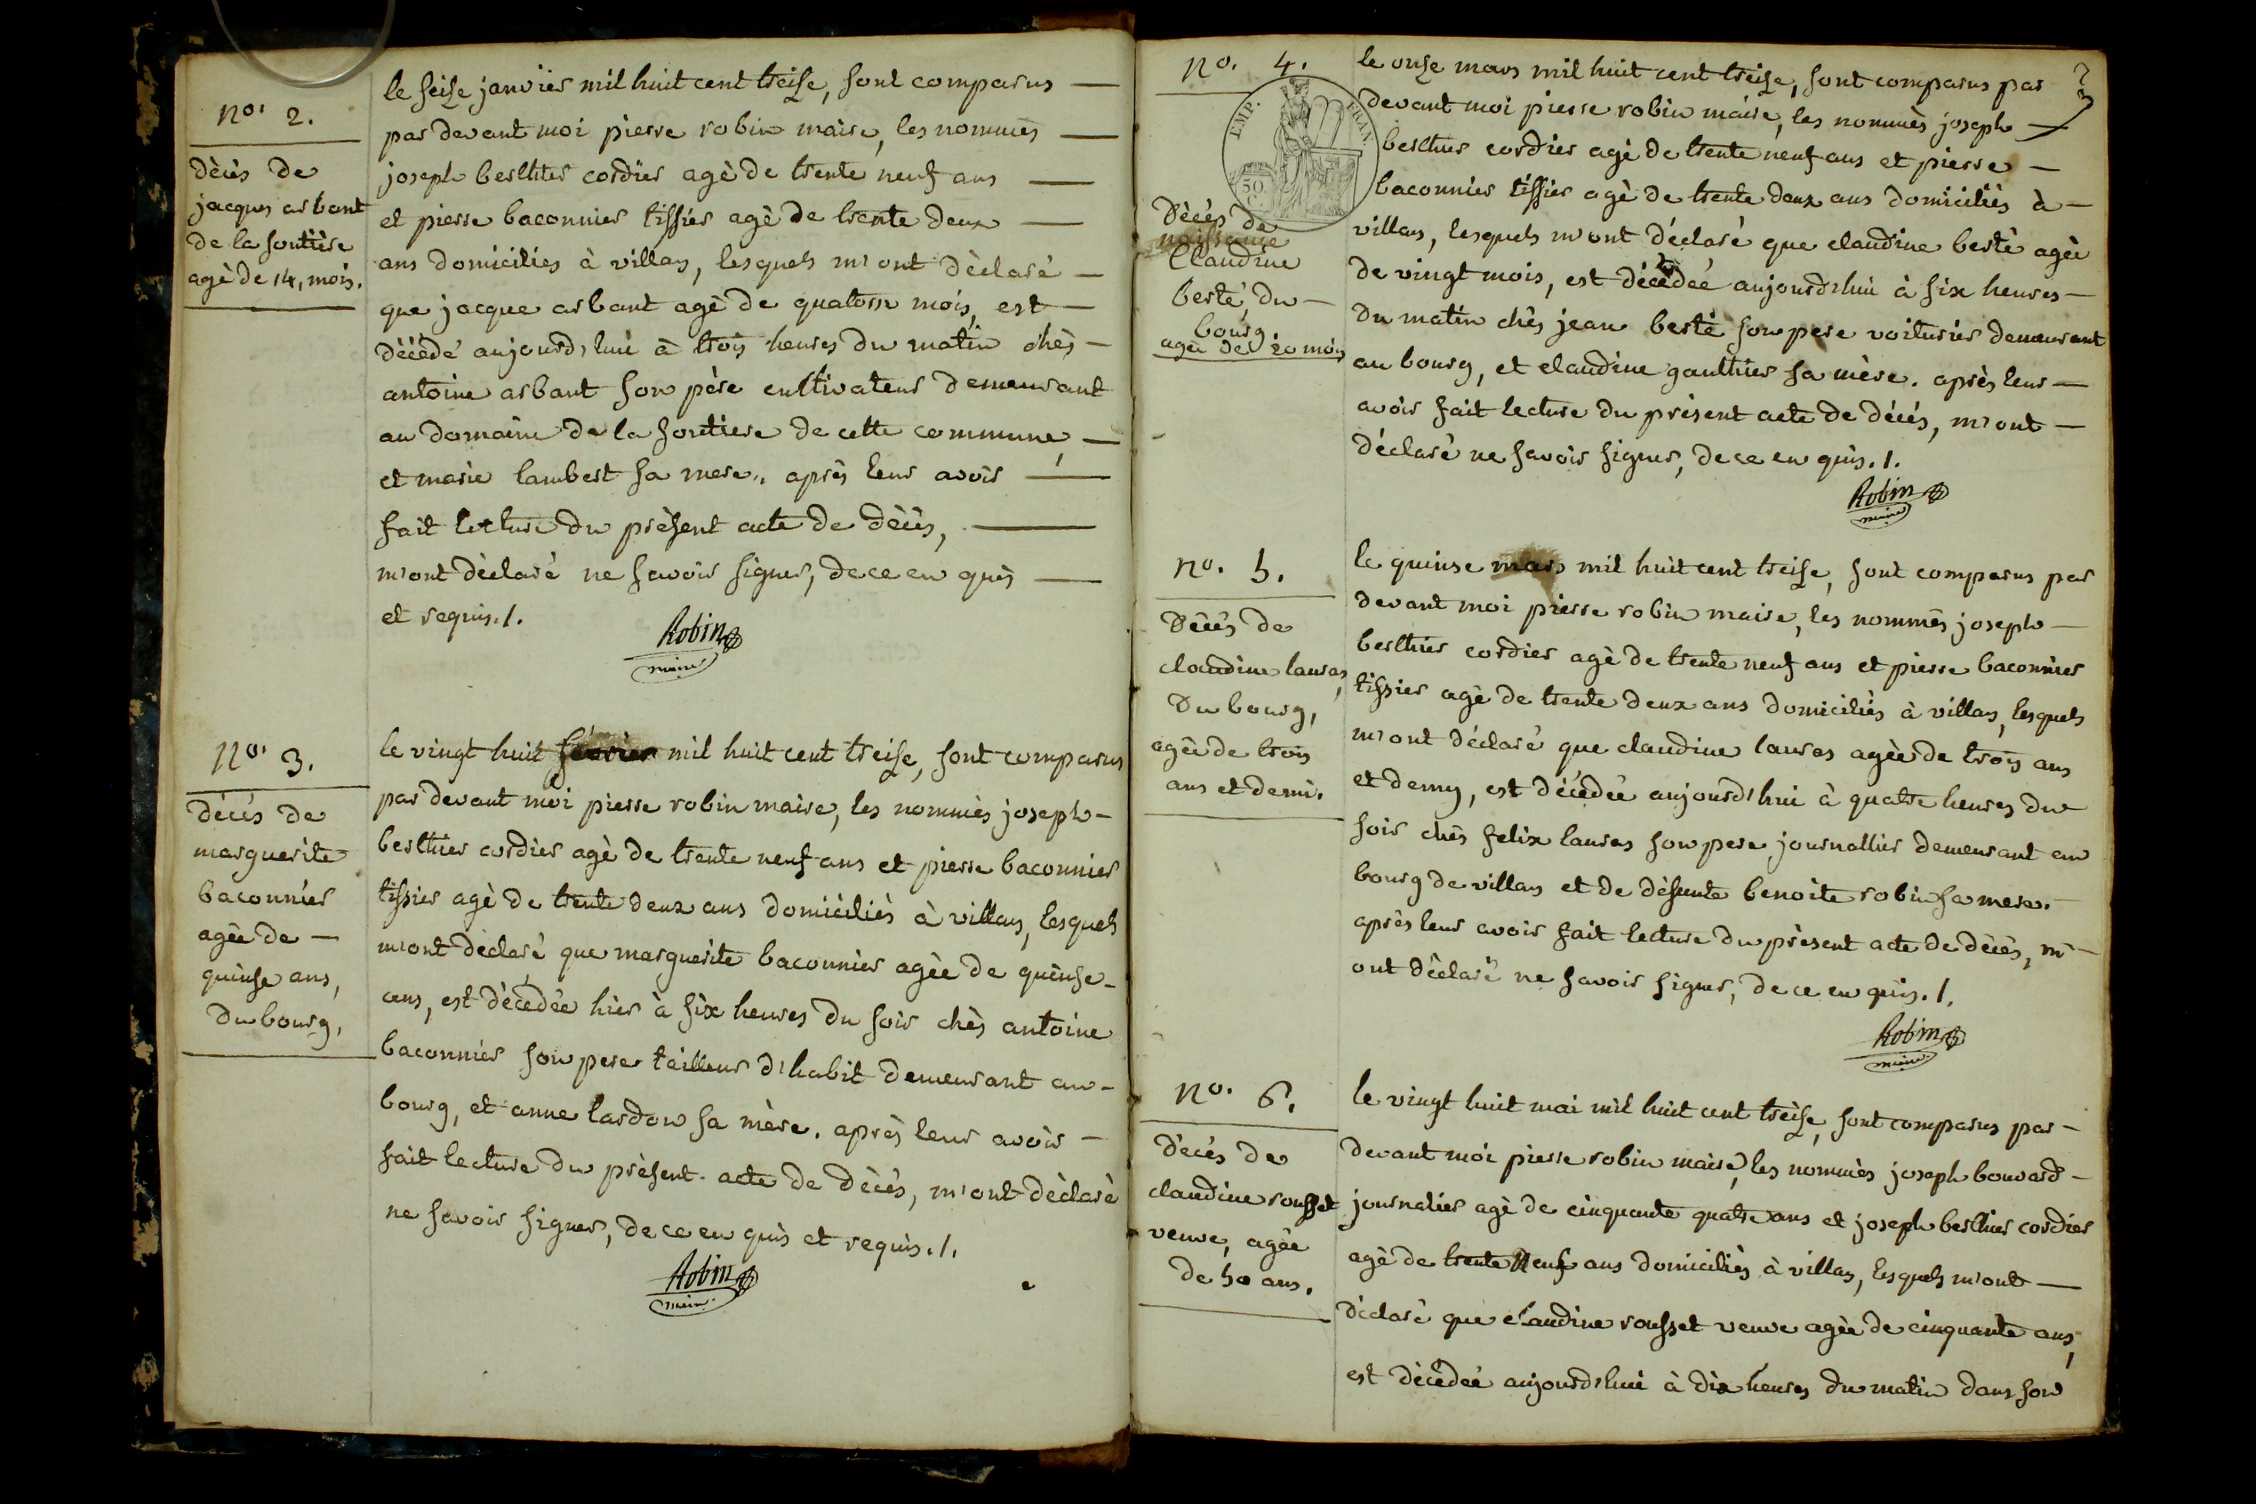 no. 2.
dècès de
jacques arbant
de la foutière
agè de 14, mois.
le seise janvier mil huit cent treise, sont comparus
par devant moi pierre robin maire, les nommès
joseph berthier cordier agè de trente neuf ans
et pierre baconnier tissier agè de trente deux
ans domiciliès à villars, lesquels m'ont dèclarè
que jacque arbant agè de quatorze mois, est
dècèdè aujourd'hui à trois heures du matin chès
antoine arbant son père cultivateur demeurant
au domaine de la foutiere de cette commune,
et marie lambert sa mere. après leur avoir
fait lecture du prèsent acte de dècès,
m'ont dèclarè ne savoir signer, de ce en quis
et requis./.
Robin
maire
no. 3.
dècès de
marguerite
baconnier
agèe de
quinse ans,
du bourg,
le vingt huit fèvrier mil huit cent treise, sont comparus
par devant moi pierre robin maire, les nommès joseph
berthier cordier agè de trente neuf ans et pierre baconnier
tissier agè de trente deux ans domiciliès à villars, lesquels
m'ont dèclarè que marguerite baconnier agèe de quinse
ans, est dècèdèe hier à six heures du soir chès antoine
baconnier son pere tailleur d'habit demeurant au
bourg, et anne lardon sa mère. après leur avoir
fait lecture du prèsent acte de dècès, m'ont dèclarè
ne savoir signer, de ce en quis et requis./.
Robin
maire
3
no. 4.
EMP. FRAN.
50 C.
Dècès de
naissance
Claudine
bertè, du
bourg,
agèe de 20 mois
le onse mars mil huit cent treise, sont comparus par
devant moi pierre robin maire, les nommès joseph
berthier cordier agè de trente neuf ans et pierre
baconnier tissier agè de trente deux ans domiciliès à
villars, lesquels m'ont dèclarè que claudine bertè agèe
de vingt mois, est dècèdèe aujourd'hui à six heures
du matin chès jean bertè son pere voiturier demeurant
au bourg, et claudine gauthier sa mère. après leur
avoir fait lecture du prèsent acte de dècès, m'ont
dèclarè ne savoir signer, de ce en quis./.
Robin
maire
no. 5.
Dècès de
claudine lauras,
du bourg,
agèe de trois
ans et demi.
le quinse mars mil huit cent treise, sont comparus par
devant moi pierre robin maire, les nommès joseph
berthier cordier agè de trente neuf ans et pierre baconnier
tissier agè de trente deux ans domiciliès à villars, lesquels
m'ont dèclarè que claudine lauras agèe de trois ans
et demy, est dècèdèe aujourd'hui à quatre heures du
soir chès felix lauras son pere journallier demeurant au
bourg de villars et de dèfunte benoite robin sa mere.
après leur avoir fait lecture du prèsent acte de dècès, m'
ont dèclarè ne savoir signer, de ce en quis./.
Robin
maire
no. 6.
dècès de
claudine rousset
veuve, agèe
de 50 ans.
le vingt huit mai mil huit cent treise, sont comparus par
devant moi pierre robin maire, les nommès joseph bouvard
journalier agè de cinquante quatre ans et joseph berthier cordier
agè de trente neuf ans domiciliès à villars, lesquels m'ont
dèclarè que claudine rousset veuve agèe de cinquante ans,
est dècèdèe aujourd'hui à dix heures du matin dans son